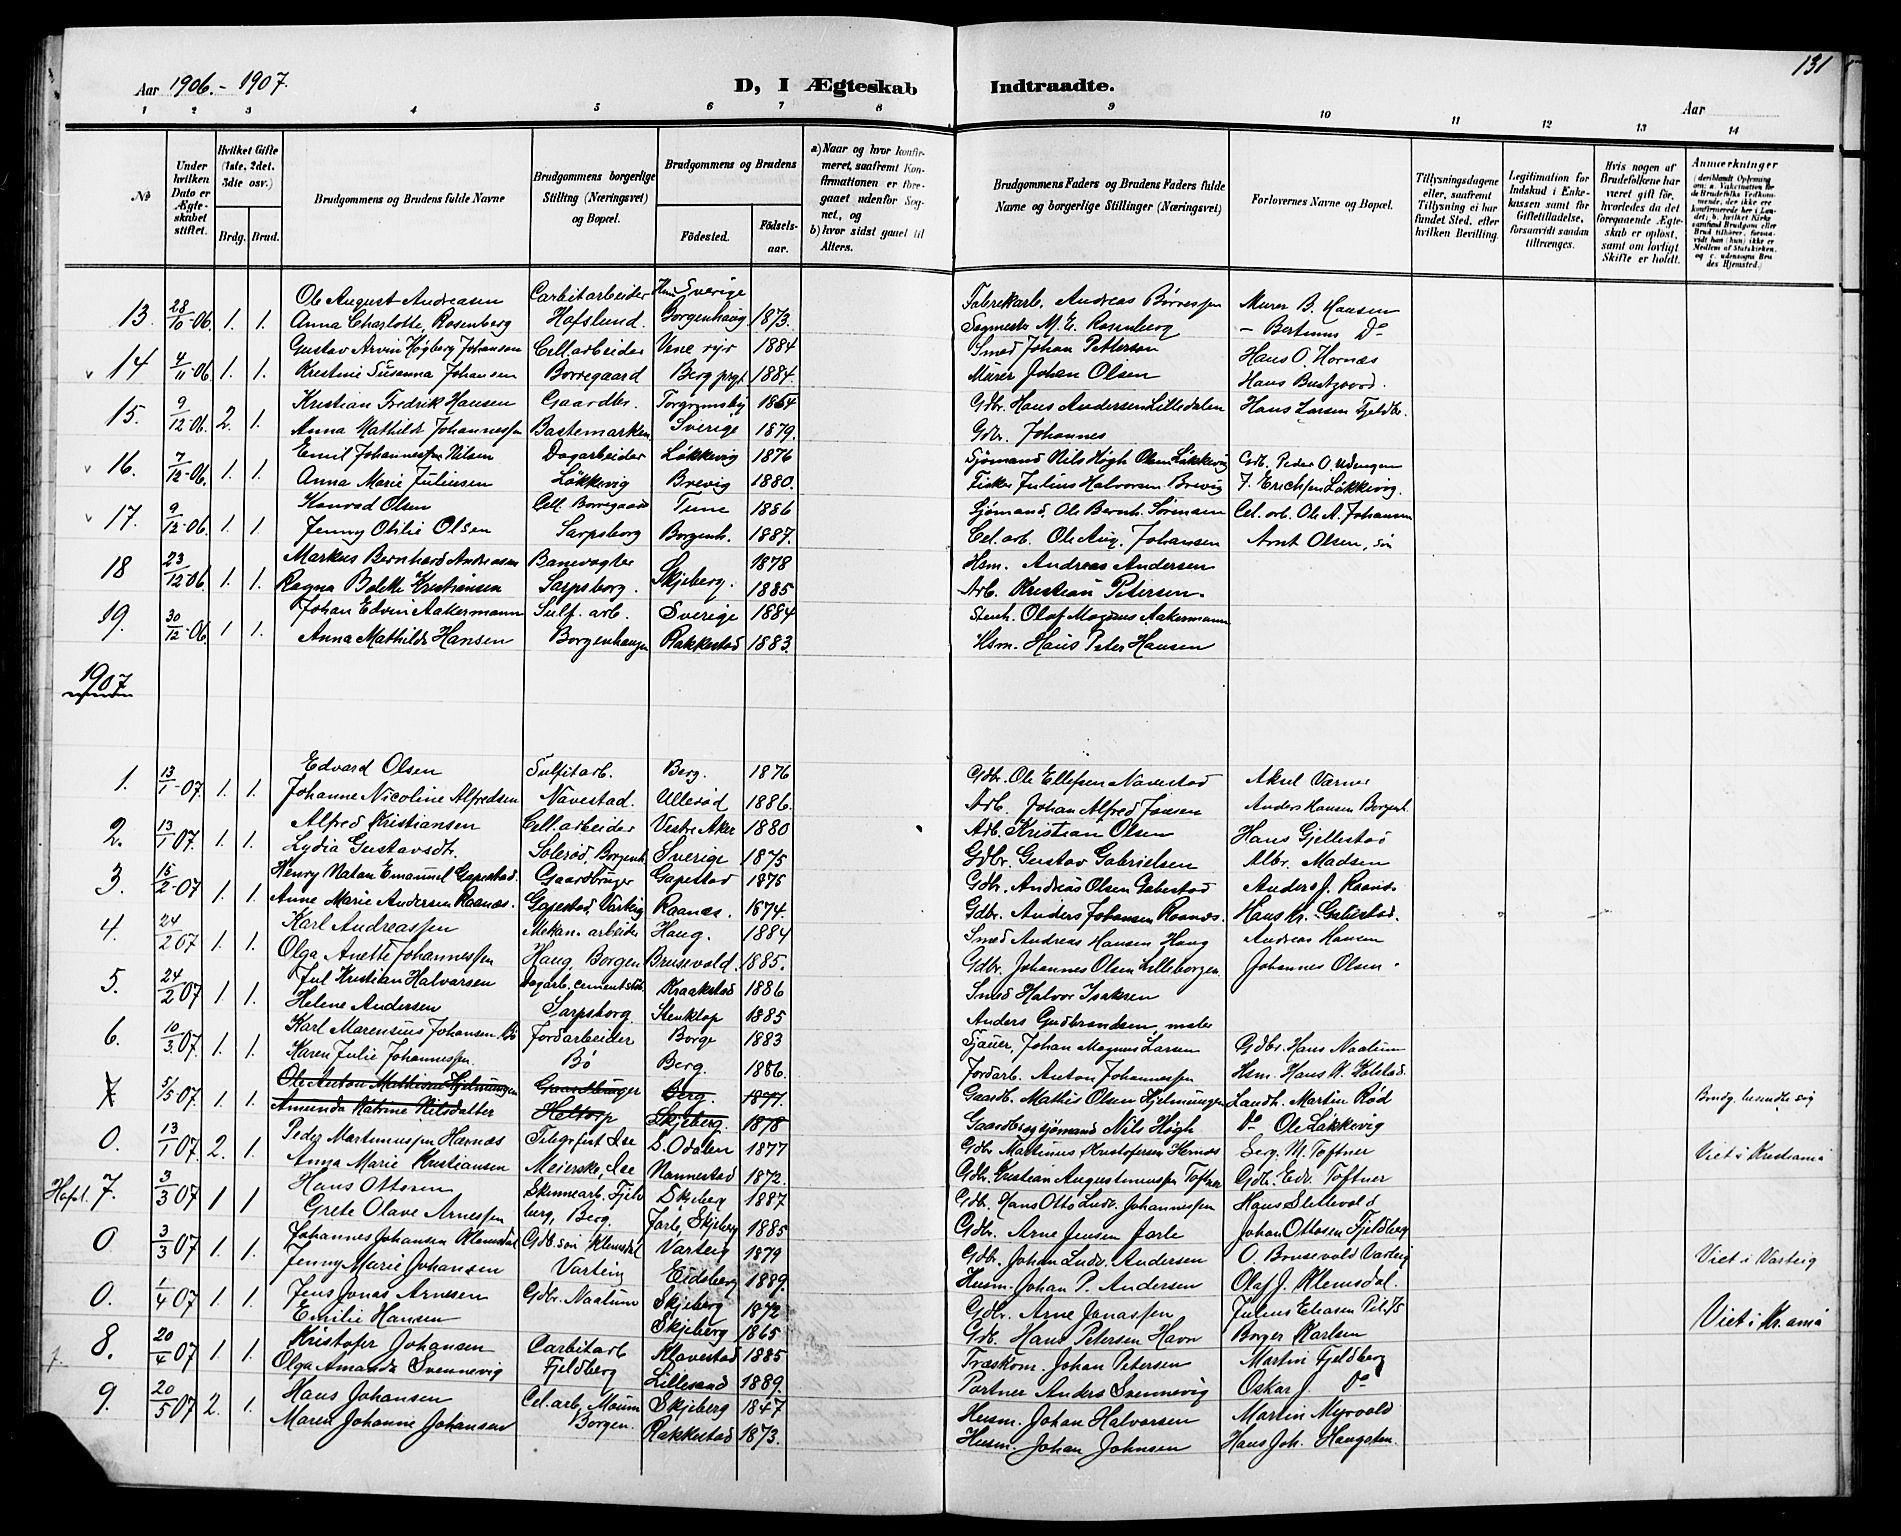 Aar 1906.-1907.
D, I Ægteskab Indtraadte.
Aar
131
1 2 3 4 5 6 7 8 9 10 11 12 13 14
No
Under hvilken Dato er Ægteskabet stiftet.
Hvilket Gifte (1ste, 2det. 3die osv.)
Brdg. Brud.
Brudgommens og Brudens fulde Navne
Brudgommens borgerlige Stilling (Næringsvei) og Bopæl.
Brudgommens og Brudens
Fødested. Fødselsaar.
a) Naar og hvor konfirmeret, saafremt Konfirmationen er foregaaet udenfor Sognet, og
b) hvor sidst gaaet til Alters.
Brudgommens Faders og Brudens Faders fulde Navne og borgerlige Stillinger (Næringsvei)
Forlovernes Navne og Bopæl.
Tillysningsdagene eller, saafremt Tillysning ei har fundet Sted, efter hvilken Bevilling.
Legitimation for Indskud i Enkekassen samt for Giftetilladelse, forsaavidt saadan tiltrænges.
Hvis nogen af Brudefolkene har været gift før, hvorledes da det foregaaende Ægteskab er opløst, samt om lovligt Skifte er holdt.
Anmærkninger
13. 28/10-06. 1. 1. Ole August Andreasen Carbitarbeider Sverige Fabrekarb. Andreas Børresen Murer B. Hansen
Anna Charlotte, Rosenberg Hafslund. Borgenhaug 1873. Sagmester M. E. Rosenberg – Bertinus Do
14 4/11-06 1. 1. Gustav Arvin Høgberg Johansen Cell. arbeider 1884 Smed Johan Petterson Hans O. Hornæs
Kristine Susanna Johansen Borregaard Berg prgj 1884. Murer Johan Olsen Hans Bustgaard.
15. 9/12-06. 2. 1. Kristian Fredrik Hansen Gaardbr. Torgrimsby 1864 Gdbr. Hans Andersen Lilledalen Hans Larsen Fjeldbr.
Anna Mathilde Johannessen Bastemarken Sverige 1879. Gdbr. Johannes
16. 7/12-06. 1. 1. Emil Johannessen Nilsen Dagarbeider Løkkevig 1876 Sjømand Nils Høgh Olsen Løkkevig Gdb. Peder O. Udengen
Anna Marie Juliusen Løkkevig Brevig 1880. Fisker Julius Halvorsen Brevig F. Erichsen Løkkevig.
17. 9/12-06. 1. 1. Konrad Olsen Cell. Borregaard Tune 1886 Sjømand. Ole Bernh. Sørensen Cel. arb. Ole A. Johansen
Jenny Otilie Olsen Sarpsborg Borgenh. 1887. Cel. arb. Ole Aug. Johansen Arnt Olsen, søn
18 23/12-06 1. 1. Markus Bernhard Andreasen Banevogter 1878 Hsm. Andreas Andersen
Ragna Bolette Kristiansen Sarpsborg. Skjeberg. 1885 Arb. Kristian Petersen.
19. 30/12-06 1 1. Johan Edvin Aakermann Sulf. arb. Sverige 1884 Stenh. Olaf Magnus Aakermann
Anna Mathilde Hansen Borgenhaugen Rakkestad 1883. Hsm. Hans Peter Hansen
1907
1. 13/1-07. 1. 1. Edvard Olsen Sulfitarb. Berg. 1876 Gdbr. Ole Ellefsen Navestad Aksel Varner
Johanne Nicoline Alfredsen Navestad. Ullerød 1886. Arb. Johan Alfred Jonsen Anders Hansen Borgenh.
2. 13/1 07. 1. 1. Alfred Kristiansen Cell. arbeider Vestre Aker 1880 Arb. Kristian Olsen Hans Gjellestad
Lydia Gustavsdtr. Solerød, Borgenh. Sverige 1875 Gdbr. Gustav Gabrielsen Albr. Madsen
3. 15/2-07 1. 1. Henry Natan Emanuel Gapestad. Gaardbruger Gapestad 1875 Gdbr. Andreas Olsen Gabestad Anders J. Raanæs
Anne Marie Andersen Raanæs. Gapestad, Varteig Raanæs. 1874. Gdbr. Anders Johansen Raanæs. Hans Kr. Gabestad.
4. 24/2 07 1. 1. Karl Andreassen Mekan. arbeider Haug. 1884 Smed Andreas Hansen Haug Andreas Hansen
Olga Anette Johannessen Haug Borgen Brusevold. 1885. Gdbr. Johannes Olsen Lilleborgen. Johannes Olsen.
5. 24/2 07 1. 1. Jul Kristian Halvarsen Dagarb. cementstøb. Kraakstad 1886 Smed Halvor Isaksen
Helene Andersen Sarpsborg. Stenktop 1885 Anders Gudbrandsen, maler
6. 10/3 07. 1. 1. Karl Marensius Johansen Bø Jordarbeider Borge 1883 Tjauer, Johan Magnus Larsen Gdbr. Hans Naatum
Karen Julie Johannessen Bø Berg. 1886. Jordarb. Anton Johannessen Hsm. Hans K. Kolstad.
7 5/5 07 1. 1. Ole Anton Mathisen Hjelmungen Gaardbruger Berg. 1877. Gaardb. Mattis Olsen Hjelmungen Landh. Martin Rød Brudg. besendte sig
Amunda Katrine Nilsdatter Heltorp Skjeberg. 1878 Gaardbr og sjømand Nils Høgh Do Ole Løkkevig
0. 13/1 07. 2. 1. Peder Martinussen Harnæs Telegrfist Ise S. Odalen 1877 Gdbr. Martinus Kristofersen Hernæs Serg. M. Toftner Viet i Kristiania
Anna Marie Kristiansen Meierske, Ise Nannestad 1872. Gdbr. Kristian Augustinussen Toftner Gdb. Edv. Toftner
Hafsl. 7. 3/3 07 1 1 Hans Ottosen Skinnearb. Fjeldberg, Berg. Skjeberg 1887 Gdbr. Hans Otto Ludv. Johannessen Hans Stillevold
Grete Olave Arnessen Jarle, Skjeberg 1885 Gdbr. Arne Jensen Jarle Johan Ottosen Fjeldberg
0 3/3 07 1. 1. Johannes Johansen Klemsdal Gdb. søn Klemsdal Varteig 1879 Gdbr. Johan Ludv. Andersen O. Brusevold Varteig Viet i Varteig
Jenny Marie Johansen Varteig Eidsberg 1889. Husm. Johan P. Andersen Olaf J. Klemsdal.
0. 1/4 07 1. 1. Jens Jonas Arnesen Gdbr. Naatum Skjeberg 1872 Gdbr. Arne Jonassen Julius Eliasen Viet i Kr.ania
Emilie Hansen Skjeberg 1865 Gdb. Hans Petersen Havn Borger Karlsen
8. 20/4 07 1. 1. Kristofer Johansen Carbitarb Klavestad 1885 Træskom. Johan Petersen Martin Fjeldberg
Olga Amanda Svennevig Fjeldberg Lillesand 1889. Portner Anders Svennevig Oskar J. Do
9. 20/5 07 2. 1. Hans Johansen Cel. arb. Moum Skjeberg 1847 Husm. Johan Halvorsen Martin Myrvold
Maren Johanne Johansen Borgen. Rakkestad 1873. Husm. Johan Johnsen Hans Joh. Haugsten.